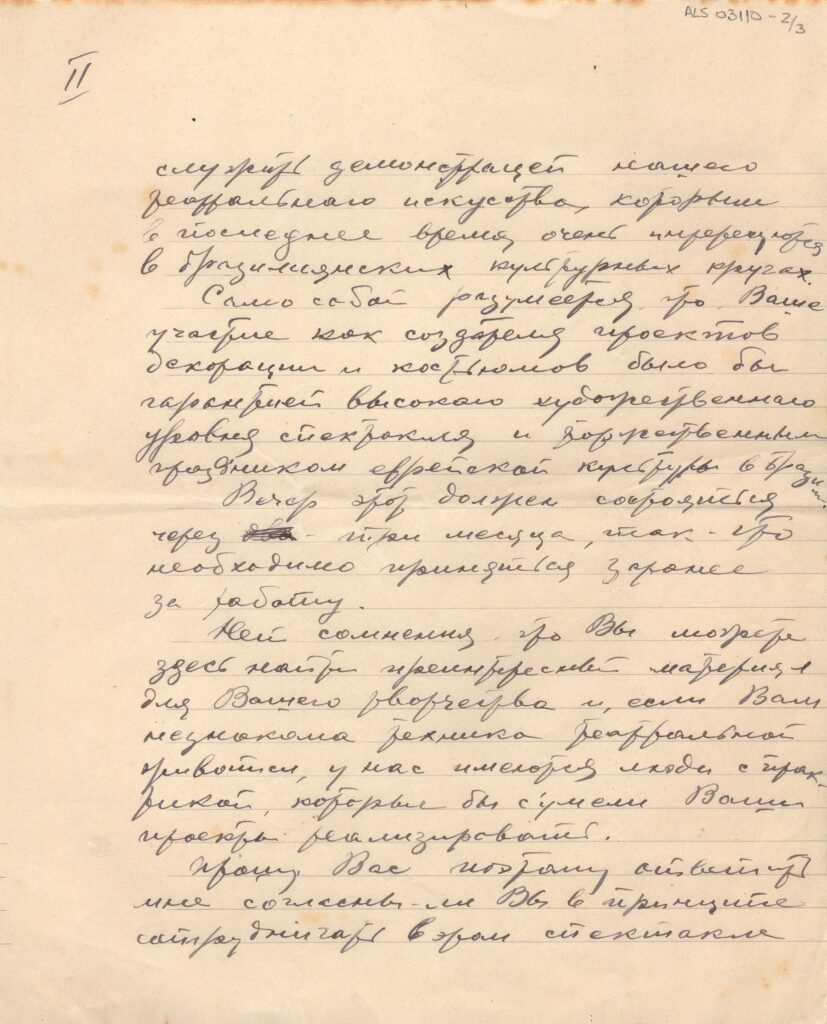 ALS 03110 - 2/3
II
служить демонстрацей нашего
театральнаго искусства, которым
в последнее время очень интересуются
в бразилиянских культурных кругах.
Само собой разумеется, что Ваше
участие как создателя проектов
декорации и костьюмов было бы
гарантией высокаго художественнаго
уровня спектакля и торжественным
праздником еврейской культуры в Брази-
Вечер этот должен состояться
через два - три месяца, так-что
необходимо приняться заранее
за работу.
Нет сомнения что Вы можете
здесь найти преинтересный материал
для Вашего творчества и, если Вам
незнакома техника театральной
живописи, у нас имеются люди с прак-
тикой, которые бы сумели Ваши
проекты реализировать.
Прошу Вас поэтому ответить
мне согласны-ли Вы в принципе
сотрудничать в этом спектакле